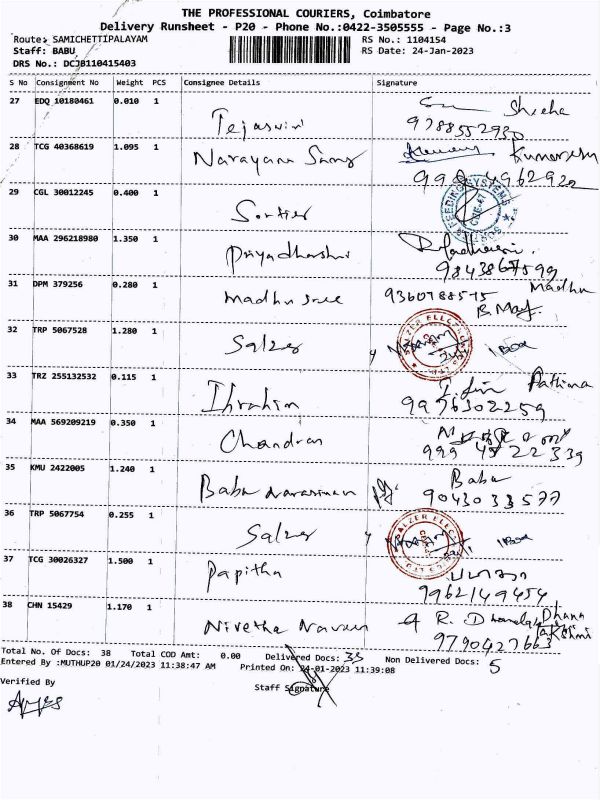 THE PROFESSIONAL COURIERS, Coimbatore
Delivery Runsheet - P20 - Phone No.:0422-3505555 - Page No.:3
Route: SAMICHETTIPALAYAM RS No.: 1104154
Staff: BABU RS Date: 24-Jan-2023
DRS No.: DCJB110415403
S No Consignment No Weight PCS Consignee Details Signature
27 EDQ 10180461 0.010 1
Tejaswini 9788552930
28 TCG 40368619 1.095 1
Narayana
29 CGL 30012245 0.400 1
FEEDING SYSTEMS
30 MAA 296218980 1.350 1
Priyadharshni
31 DPM 379256 0.280 1 Madhu
Madhu sree 9360788575
32 TRP 5067528 1.280 1
SALZER ELECT
Salzer 1 Box
33 TRZ 255132532 0.115 1 Pathima
Ibrahim 9976302259
34 MAA 569209219 0.350 1
Chandran
35 KMU 2422005 1.240 1 Babu
Babu narasiman 9043033577
36 TRP 5067754 0.255 1
SALZER ELECT
Salzer 1 Box
37 TCG 30026327 1.500 1
Papitha
9962149454
38 CHN 15429 1.170 1 Dhana
Nivetha Naveen R. Lakshmi
9790427663
Total No. Of Docs: 38 Total COD Amt: 0.00 Delivered Docs: 33 Non Delivered Docs: 5
Entered By :MUTHUP20 01/24/2023 11:38:47 AM Printed On: 24-01-2023 11:39:08
Verified By Staff Signature